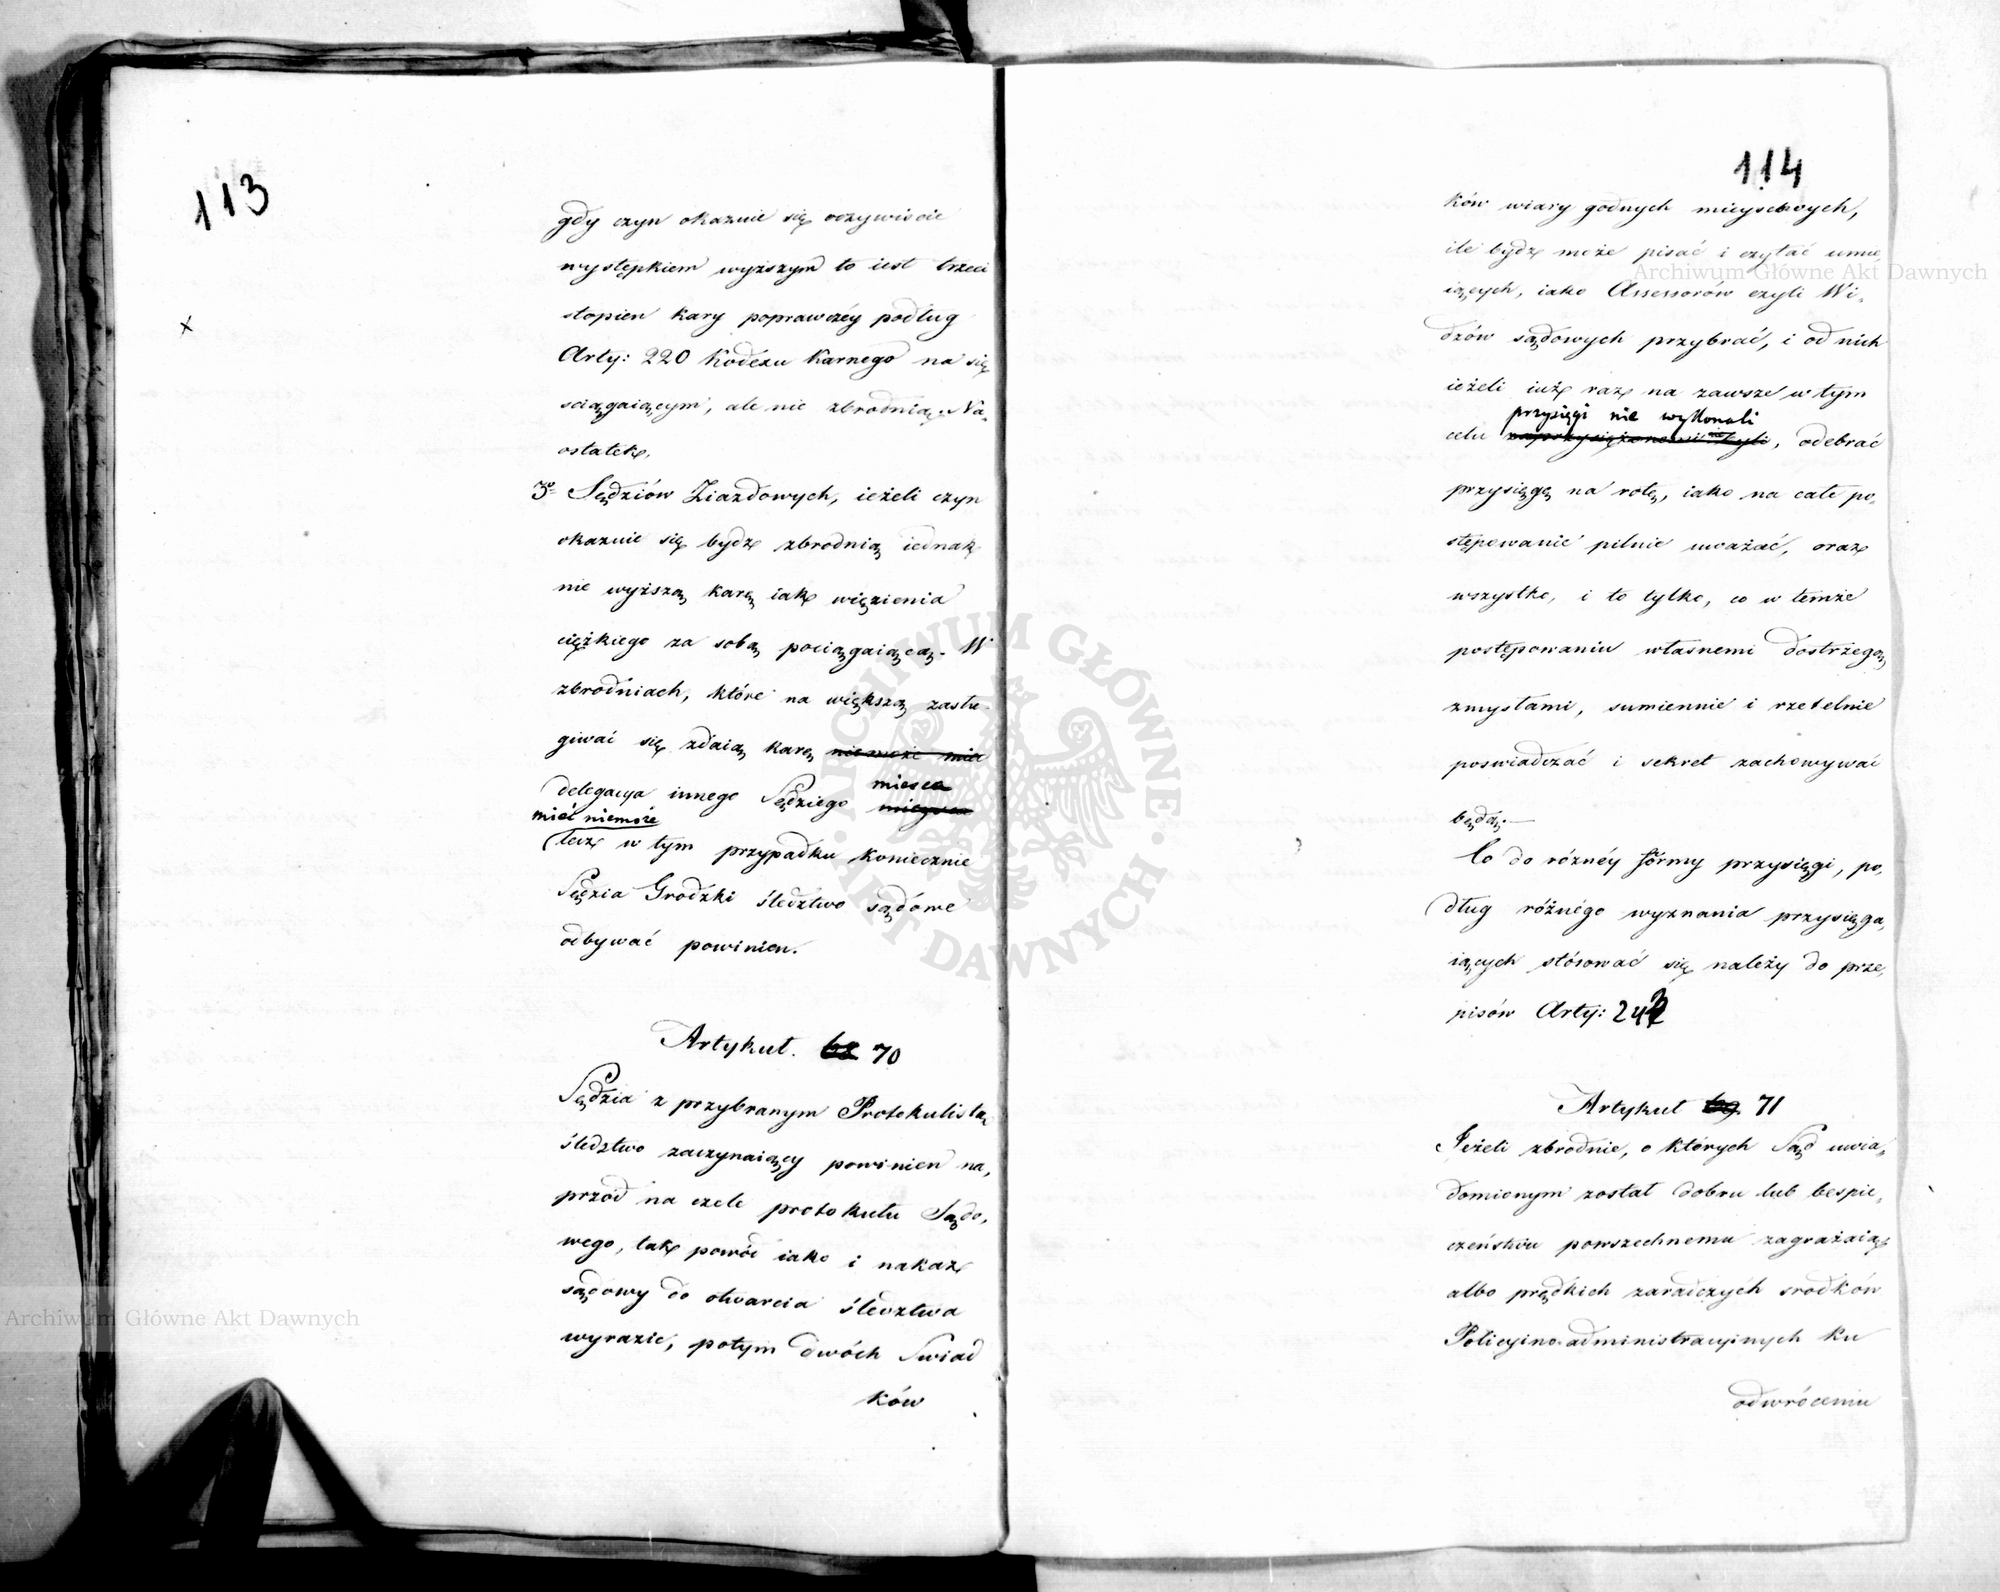 113
gdy czyn okazuie się oczywiscie
występkiem wyższym to iest trzeci
stopien kary poprawczéy podług
Arty: 220 Kodexu Karnego na się
sciągaiącym, ale nie zbrodnią. Na-
ostatek.
3º Sędziów Ziazdowych, ieżeli czyn
okazuie się bydz zbrodnią iednak
nie wyższą karę iak więzienia
ciężkiego za sobą pociągaiącą. W
zbrodniach, które na większą zasłu-
giwać się zdaią karę nie może mieć
delegacya innego Sędziego mieysca
miesca
mieć niemoże
lecz w tym przypadku koniecznie
Sędzia Grodzki śledztwo sądowe
odbywać powinien.
Artykuł. 68 70
Sędzia z przybranym Protokulistą
śledztwo zaczynaiący powinien na-
przód na czele protokułu Sądo-
wego, tak powód iako i nakaz
sądowy do otwarcia śledztwa
wyrazić, potym dwóch Swiad
ków
114
ków wiary godnych mieyscowych,
ile bydz może pisać i czytać umie
iących, iako Assessorów czyli Wi-
dzów sądowych przybrać, i od nich
ieżeli iuż raz na zawsze w tym
przysięgi nie wykonali
celu zaprzysiężonemi nie byli, odebrać
przysięgę na rotę, iako na całe po-
stępowanie pilnie uważać, oraz
wszystko, i to tylko, co w temże
postępowaniu własnemi dostrzegą
zmysłami, sumiennie i rzetelnie
poswiadczać i sekret zachowywać
będą.—
Co do różnéy formy przysięgi, po-
dług różnégo wyznania przysięga-
iących stósować się należy do prze-
pisów Arty: 242
Artykuł 69. 71
Jeżeli zbrodnie, o których Sąd uwia-
domionym został dobru lub bespie-
czeństwu powszechnemu zagrażaią
albo prędkich zaradczych srodków
Policyino-administracyinych ku
odwróceniu